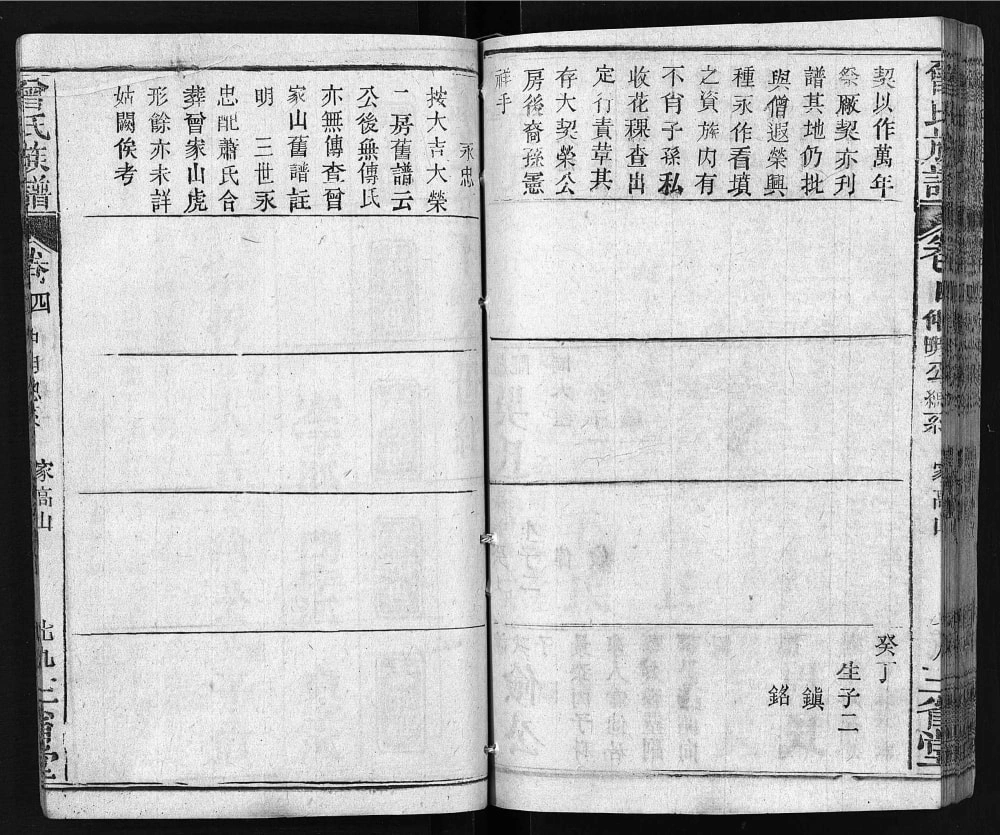 契以作萬年
祭厰契亦刋
譜其地仍批
與僧遐榮興
種永作看墳
之資族内有
不肖子孫私
收花稞查出
定行責革其
存大契榮公
房後裔孫憲
祥手
癸丁
生子二
鎭
銘
永忠
按大吉大榮
二房舊譜云
公後無傳氏
亦無傳查曾
家山舊譜註
明三世永
忠配蕭氏合
葬曾家山虎
形餘亦未詳
姑闕俟考
曾氏族譜
卷四
家高山
三省堂